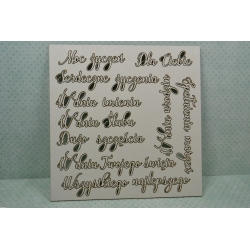 Moc życzeń
Dla Ciebie
Serdeczne życzenia
W dniu imienin
W dniu ślubu
Dużo szczęścia
W dniu Twojego święta
Wszystkiego najlepszego
W dniu urodzin
Spełnienia marzeń